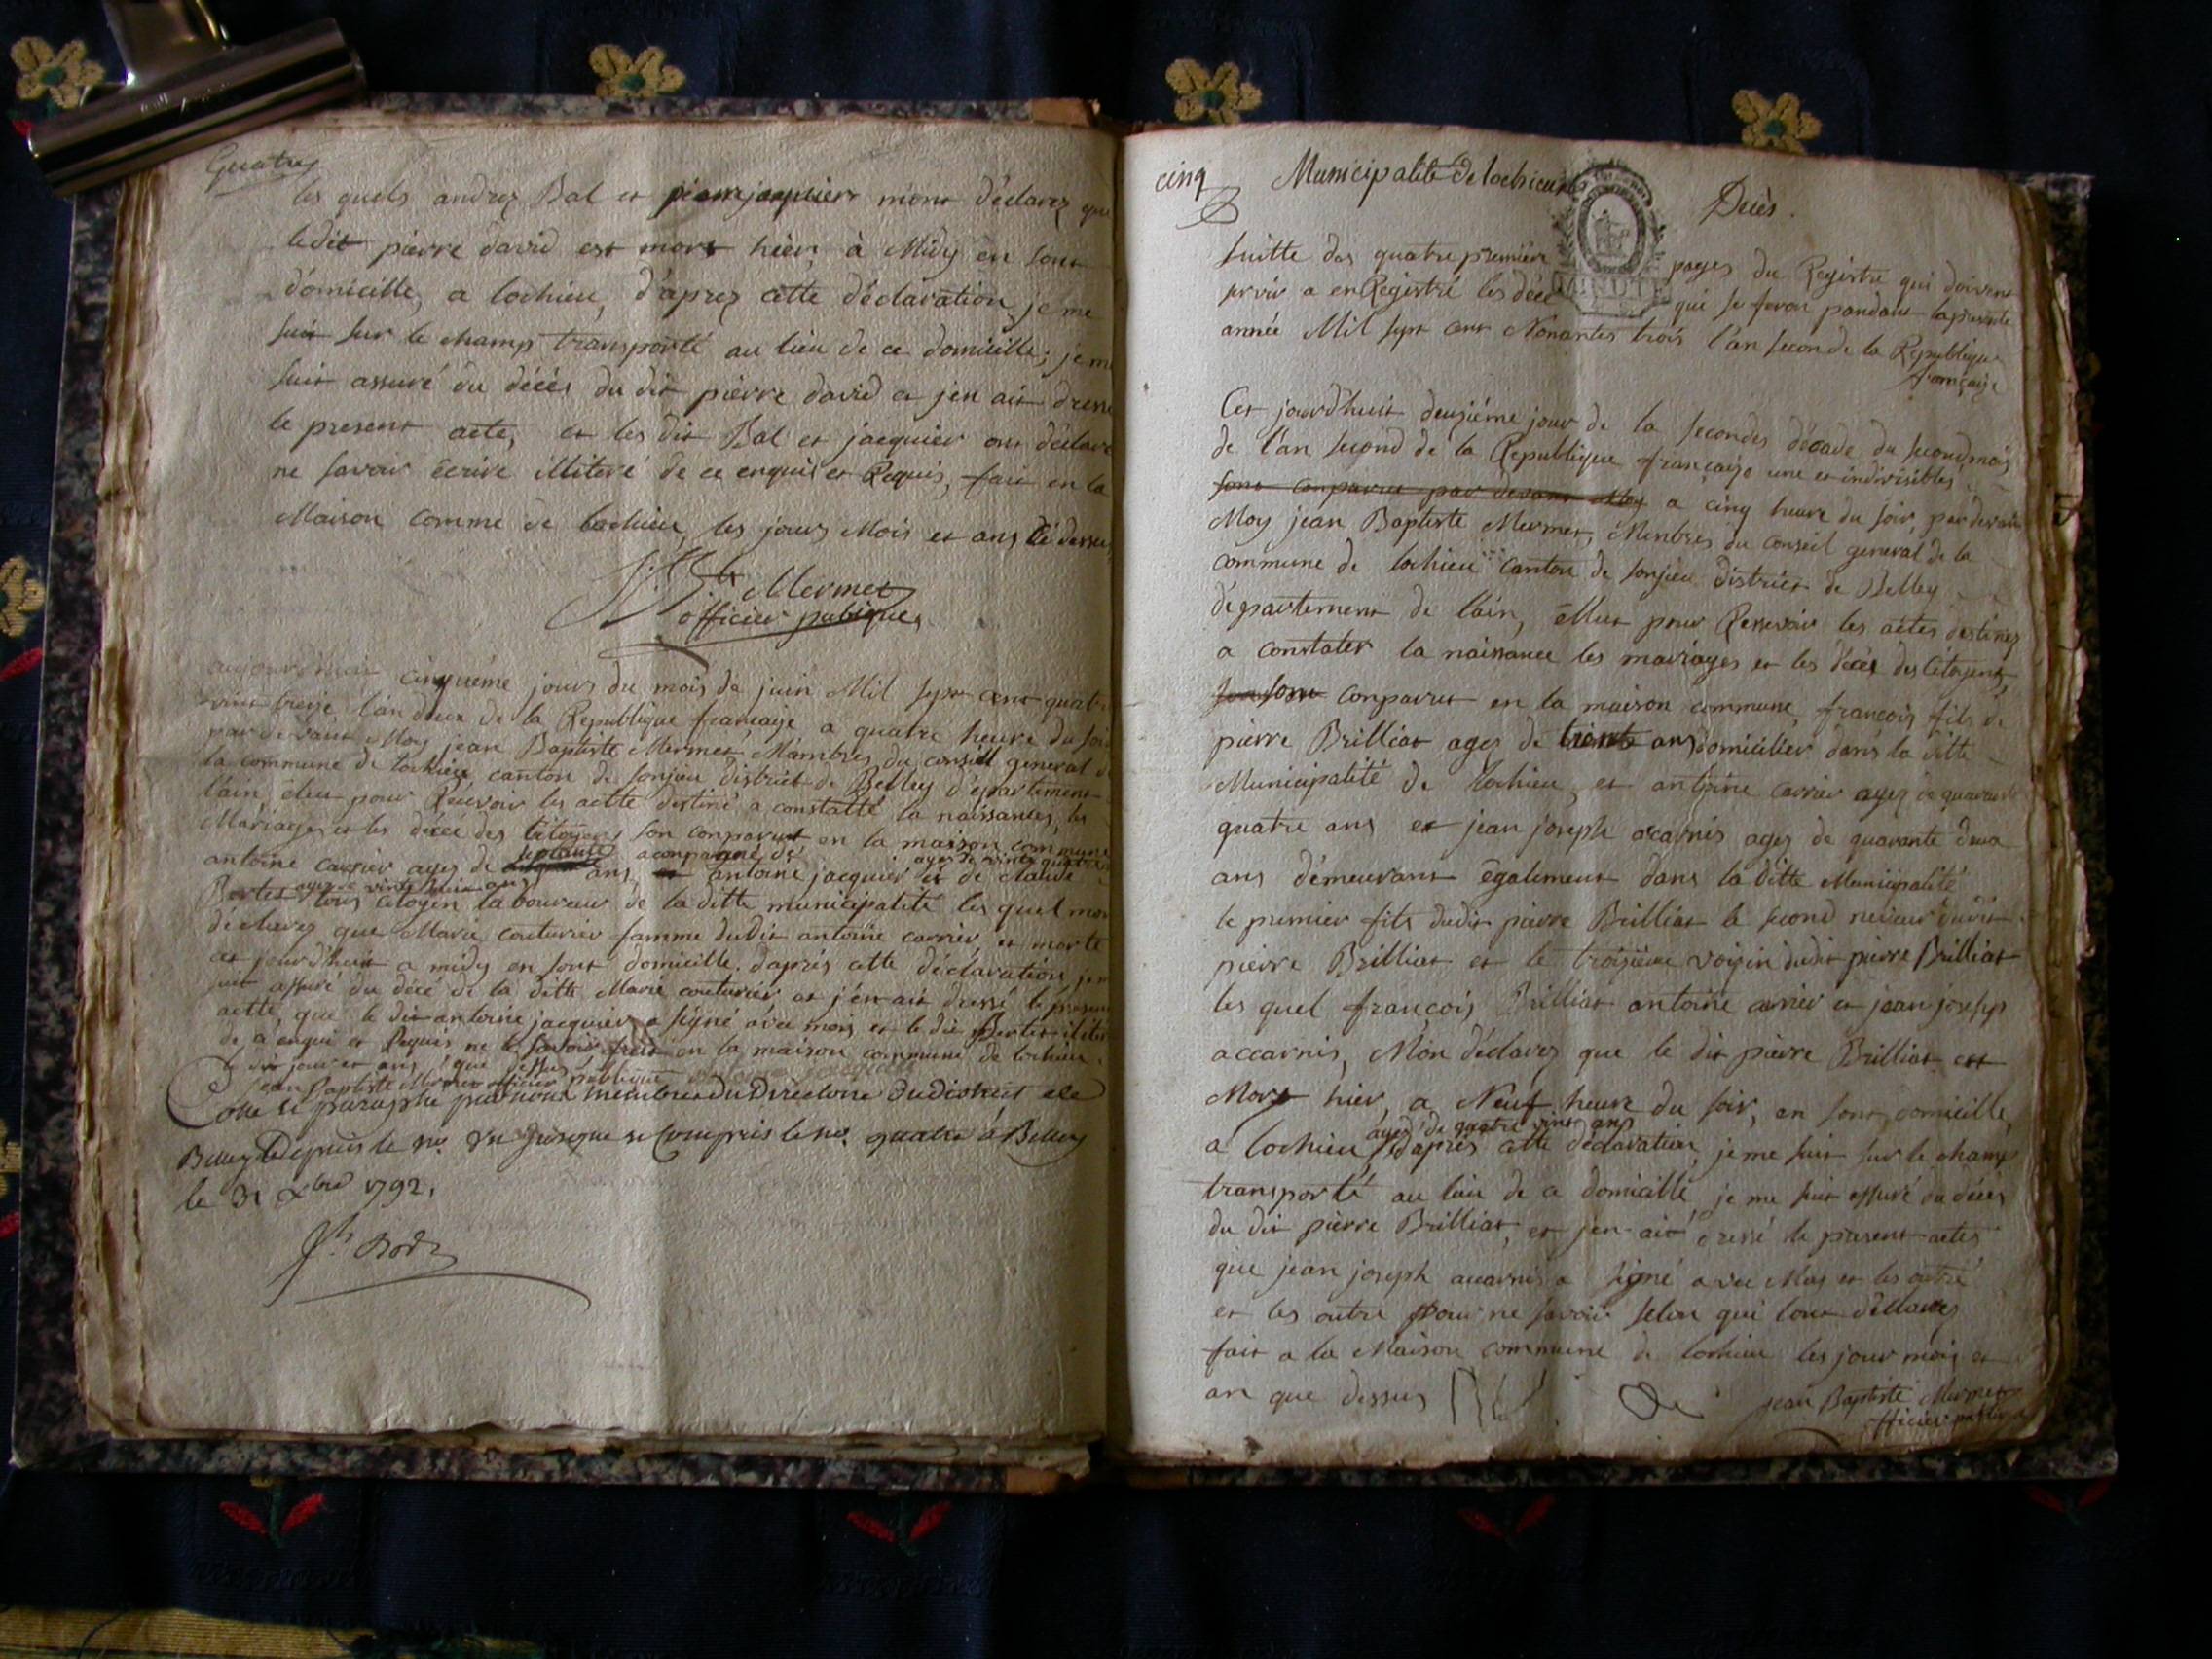 Quatre
les quels andrez Bal et pierre jacquier mont déclarez que
ledit pierre david est mort hier à Midy en sont
domicille, a lochieu, d'aprez cette déclaration je me
suit sur le champ transporté au lieu de ce domicille; je me
suit assuré du décès du dit pierre david et jen ait dressé
le present acte, et les dit Bal et jacquier ont déclaré
ne savoir écrire illiteré de ce enquis et Requis, fait en la
Maison comme de lochieu, les jours Mois et ans ci dessus
J. Bte Mermet
officier publique
aujourdhuit cinquéme jours du mois de juin Mil sept cent quatre
vint treize, l'an deux de la Republique française a quatre heure du soir
par devant Moy jean Baptiste Mermet, Mambres du conseill general de
la commune de lochieu canton de sonjieu district de Belley département
l'ain éleu pour Recevoir les actte destiné a constatté la naissances, les
Mariages et les décéé des Citoyens son conparut en la maison commune
antoine carrier ages de septante ans, aconpagné de antoine jacquier ages de vint quatre et de claude
Bertet ages de vint huit ans tous citoyen laboureur de la ditte municipalité les quel mon
déclarez que Marie couturier famme dudit antoine carrier, et morte
cet jourd'huit a midy en sont domicille. d'après cette déclaration je me
suit assuré du décé de la ditte Marie couturier et j'en ait dressé le present
actte, que le dit antoine jacquier a signé avec mois et le dit Bertet iliter
de ce enqui et Requis ne le savoir fait en la maison commune de lochieu
le dit jour et ans que dessus
jean Baptiste Mermet officier publique
Cotte et paraphé par nous membre du Directoire du District de
Belley Depuis le no. un jusque et Compris le no. quatre à Belley
le 31 xbre 1792,
cinq
Municipalité de lochieu
Décès.
MINUTE
suitte des quatre premiere pages du Registre qui doivent
servir a enRegistré les décé qui se feron pandant la presente
année Mil sept cent Nonantes trois l'an second de la Republique
française
Cet jourd'huit deuziéme jour de la secondes décade du second mois
de l'an second de la Republique française une et indivisibles
sont conparut par devant Moy a cinq heure du soir, par devant
Moy jean Baptiste Mermet, Menbres du conseil general de la
commune de lochieu canton de sonjieu district de Belley
département de l'ain, élleu pour Ressevoir les actes destinez
a constater la naissance les mariages et les décès des citoyens,
conparut en la maison commune, françois fils de
pierre Brilliat ages de trente ans domicilier dans la ditte
Municipalité de lochieu, et antoine carrier ages de quarante
quatre ans et jean joseph accarnis ages de quarante deux
ans démeurant également dans la ditte Municipalité
le premier fils dudit pierre Brilliat le second neveur dudit
pierre Brilliat et le troisième voisin dudit pierre Brilliat
les quel françois Brilliat antoine carrier et jean joseph
accarnis, Mon déclarez que le dit pierre Brilliat est
Mort hier, a Neuf heure du soir, en sont domicille,
a lochieu ages de quatre vint ans d'après cette déclaration, je me suit sur le champ
transporté au lieu de ce domicille, je me suit assuré du décès
du dit pierre Brilliat, et jen ait dressé le present actes
que jean joseph accarnis a signé avec Moy et les outre
et les outre pour ne savoir selon qui lont déllarez
fait a la Maison commune de lochieu les jour mois et
an que dessus
jean Baptiste Mermet
officier public